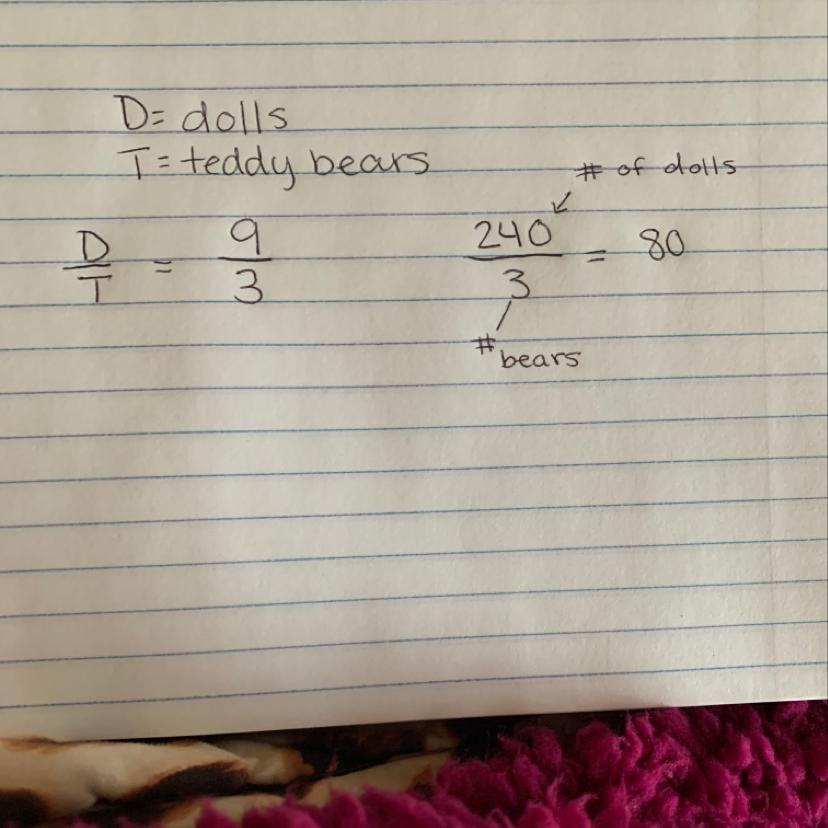 D= dolls
T= teddy bears
# of dolls
D/T = 9/3
240/3 = 80
# bears